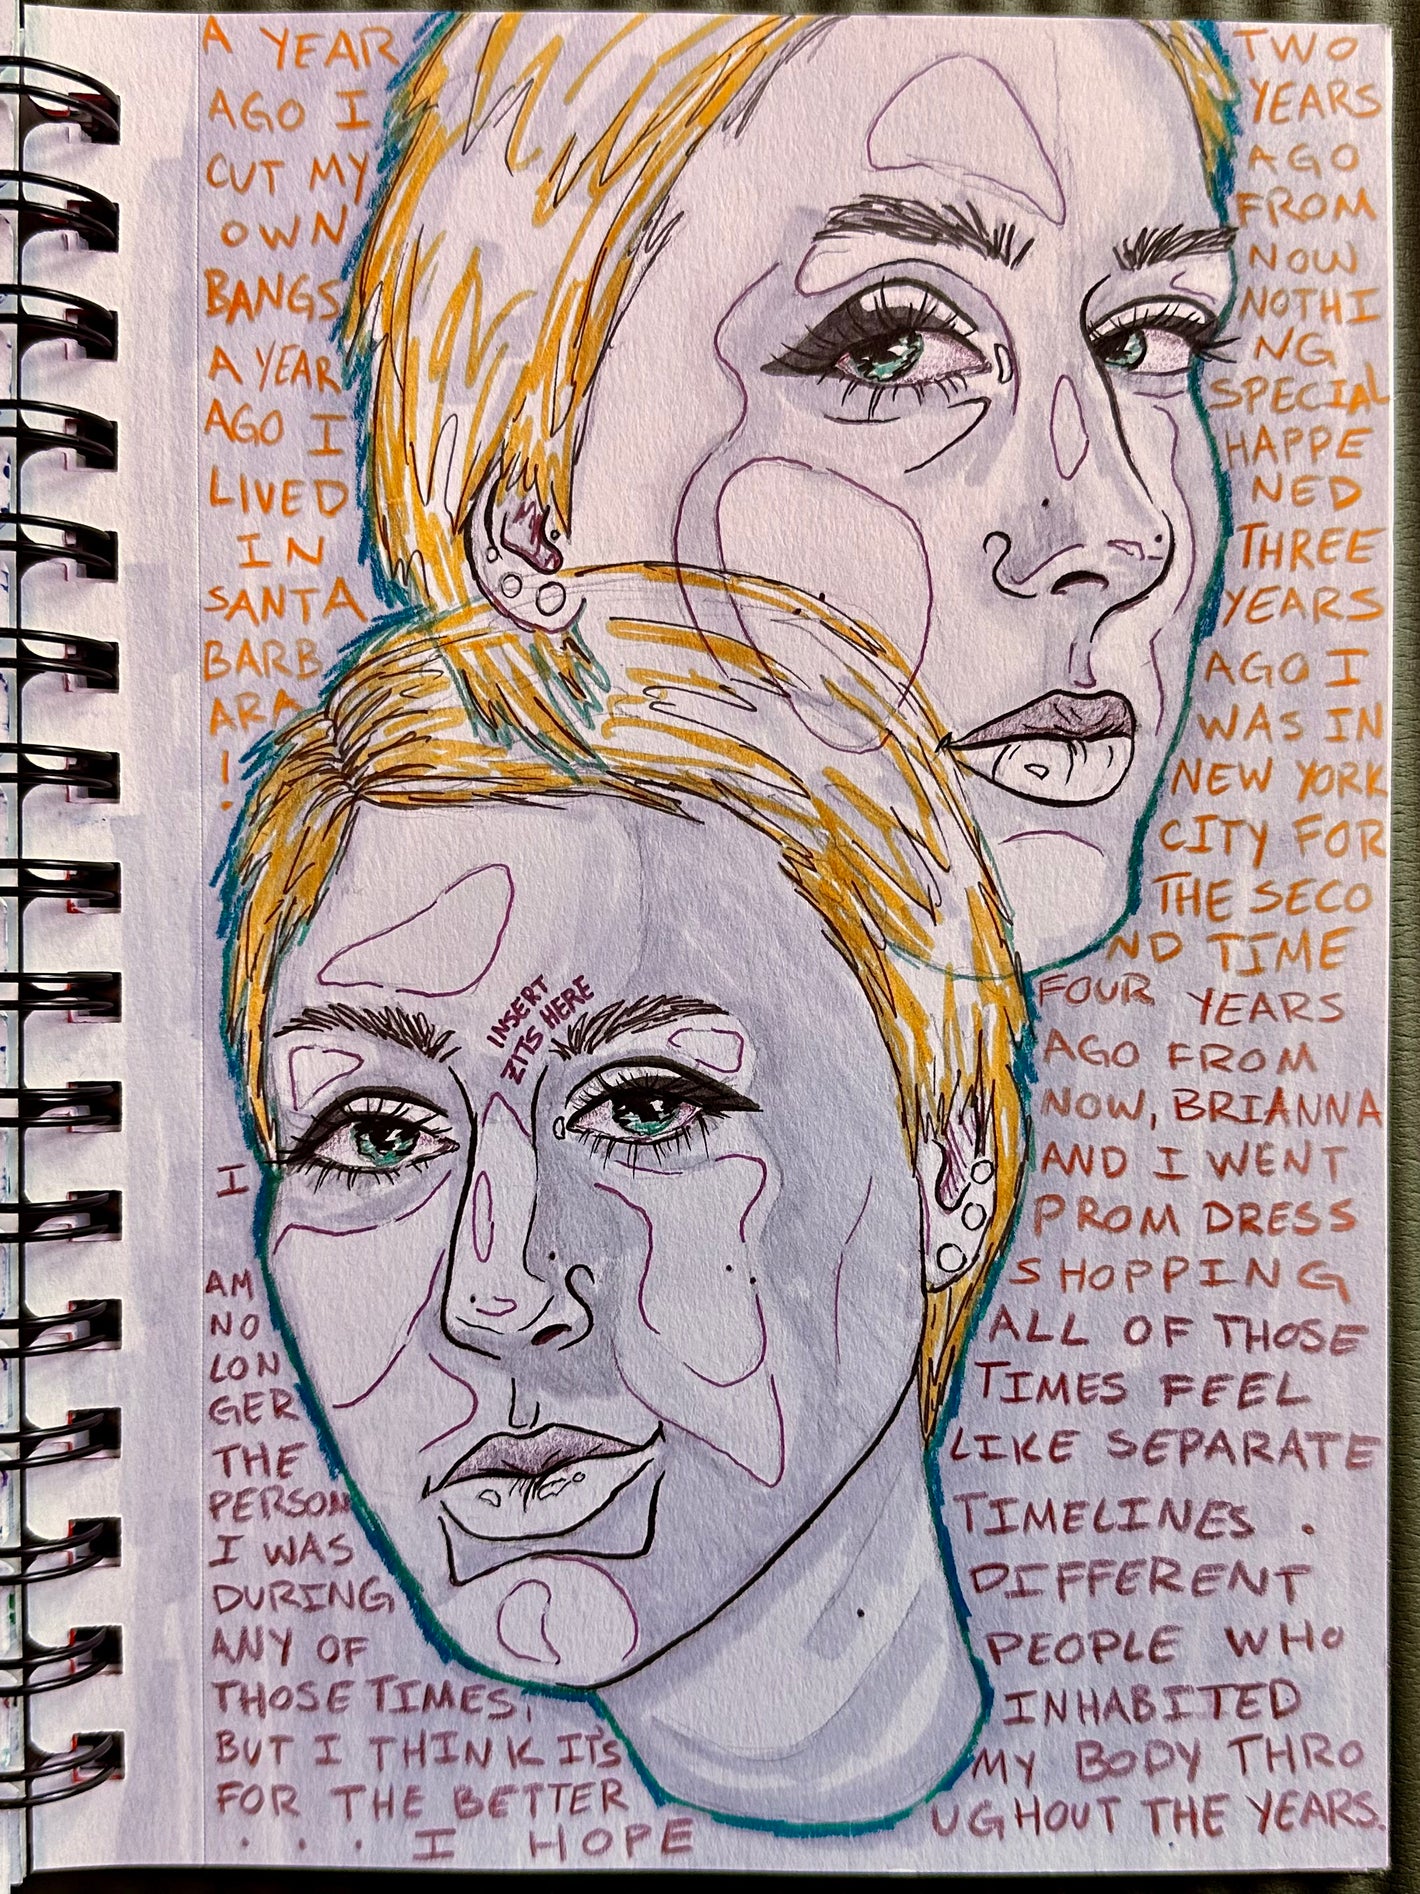 A YEAR
AGO I
CUT MY
OWN
BANGS
A YEAR
AGO I
LIVED
IN
SANTA
BARB
ARA
!
TWO
YEARS
AGO
FROM
NOW
NOTHI
NG
SPECIAL
HAPPE
NED
THREE
YEARS
AGO I
WAS IN
NEW YORK
CITY FOR
THE SECO
ND TIME
FOUR YEARS
AGO FROM
NOW, BRIANNA
AND I WENT
PROM DRESS
SHOPPING
ALL OF THOSE
TIMES FEEL
LIKE SEPARATE
TIMELINES .
DIFFERENT
PEOPLE WHO
INHABITED
MY BODY THRO
UGHOUT THE YEARS.
INSERT
ZITS HERE
I
AM
NO
LON
GER
THE
PERSON
I WAS
DURING
ANY OF
THOSE TIMES,
BUT I THINK IT'S
FOR THE BETTER
. . . I HOPE